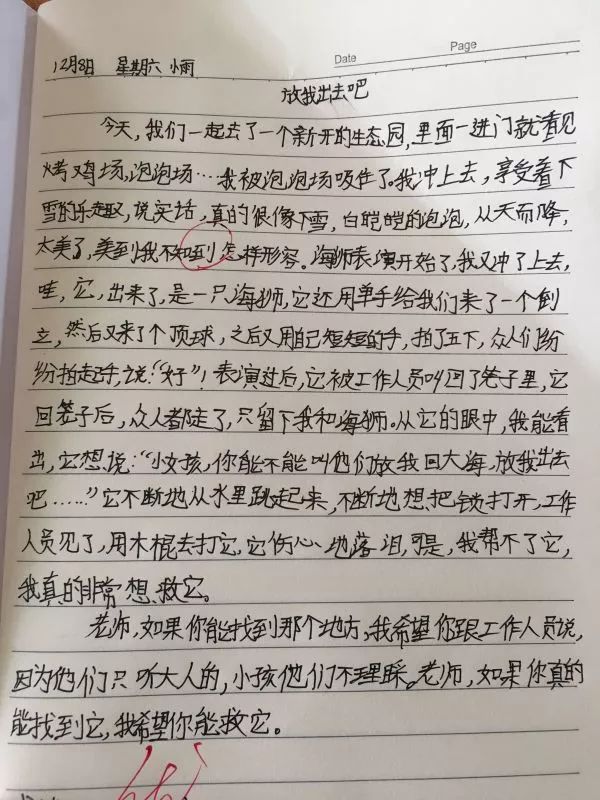 Date Page
12月8日 星期六 小雨
放我出去吧
今天,我们一起去了一个新开的生态园,里面一进门就看见
烤鸡场,泡泡场……我被泡泡场吸住了。我冲上去,享受着下
雪的乐趣,说实话,真的很像下雪,白皑皑的泡泡,从天而降,
太美了,美到我不知到怎样形容。海狮表演开始了,我又冲了上去,
哇,它,出来了,是一只海狮,它还用单手给我们来了一个倒
立,然后又来了个顶球,之后又用自己短短的手,拍了五下,众人们纷
纷拍起手,说:“好”!表演过后,它被工作人员叫回了笼子里,它
回笼子后,众人都走了,只留下我和海狮。从它的眼中,我能看
出,它想说:“小女孩,你能不能叫他们放我回大海,放我出去
吧……”它不断地从水里跳起来,不断地想把锁打开,工作
人员见了,用木棍去打它,它伤心地落泪,可是,我帮不了它,
我真的非常想救它。
老师,如果你能找到那个地方,我希望你跟工作人员说,
因为他们只听大人的,小孩他们不理踩。老师,如果你真的
能找到它,我希望你能救它。